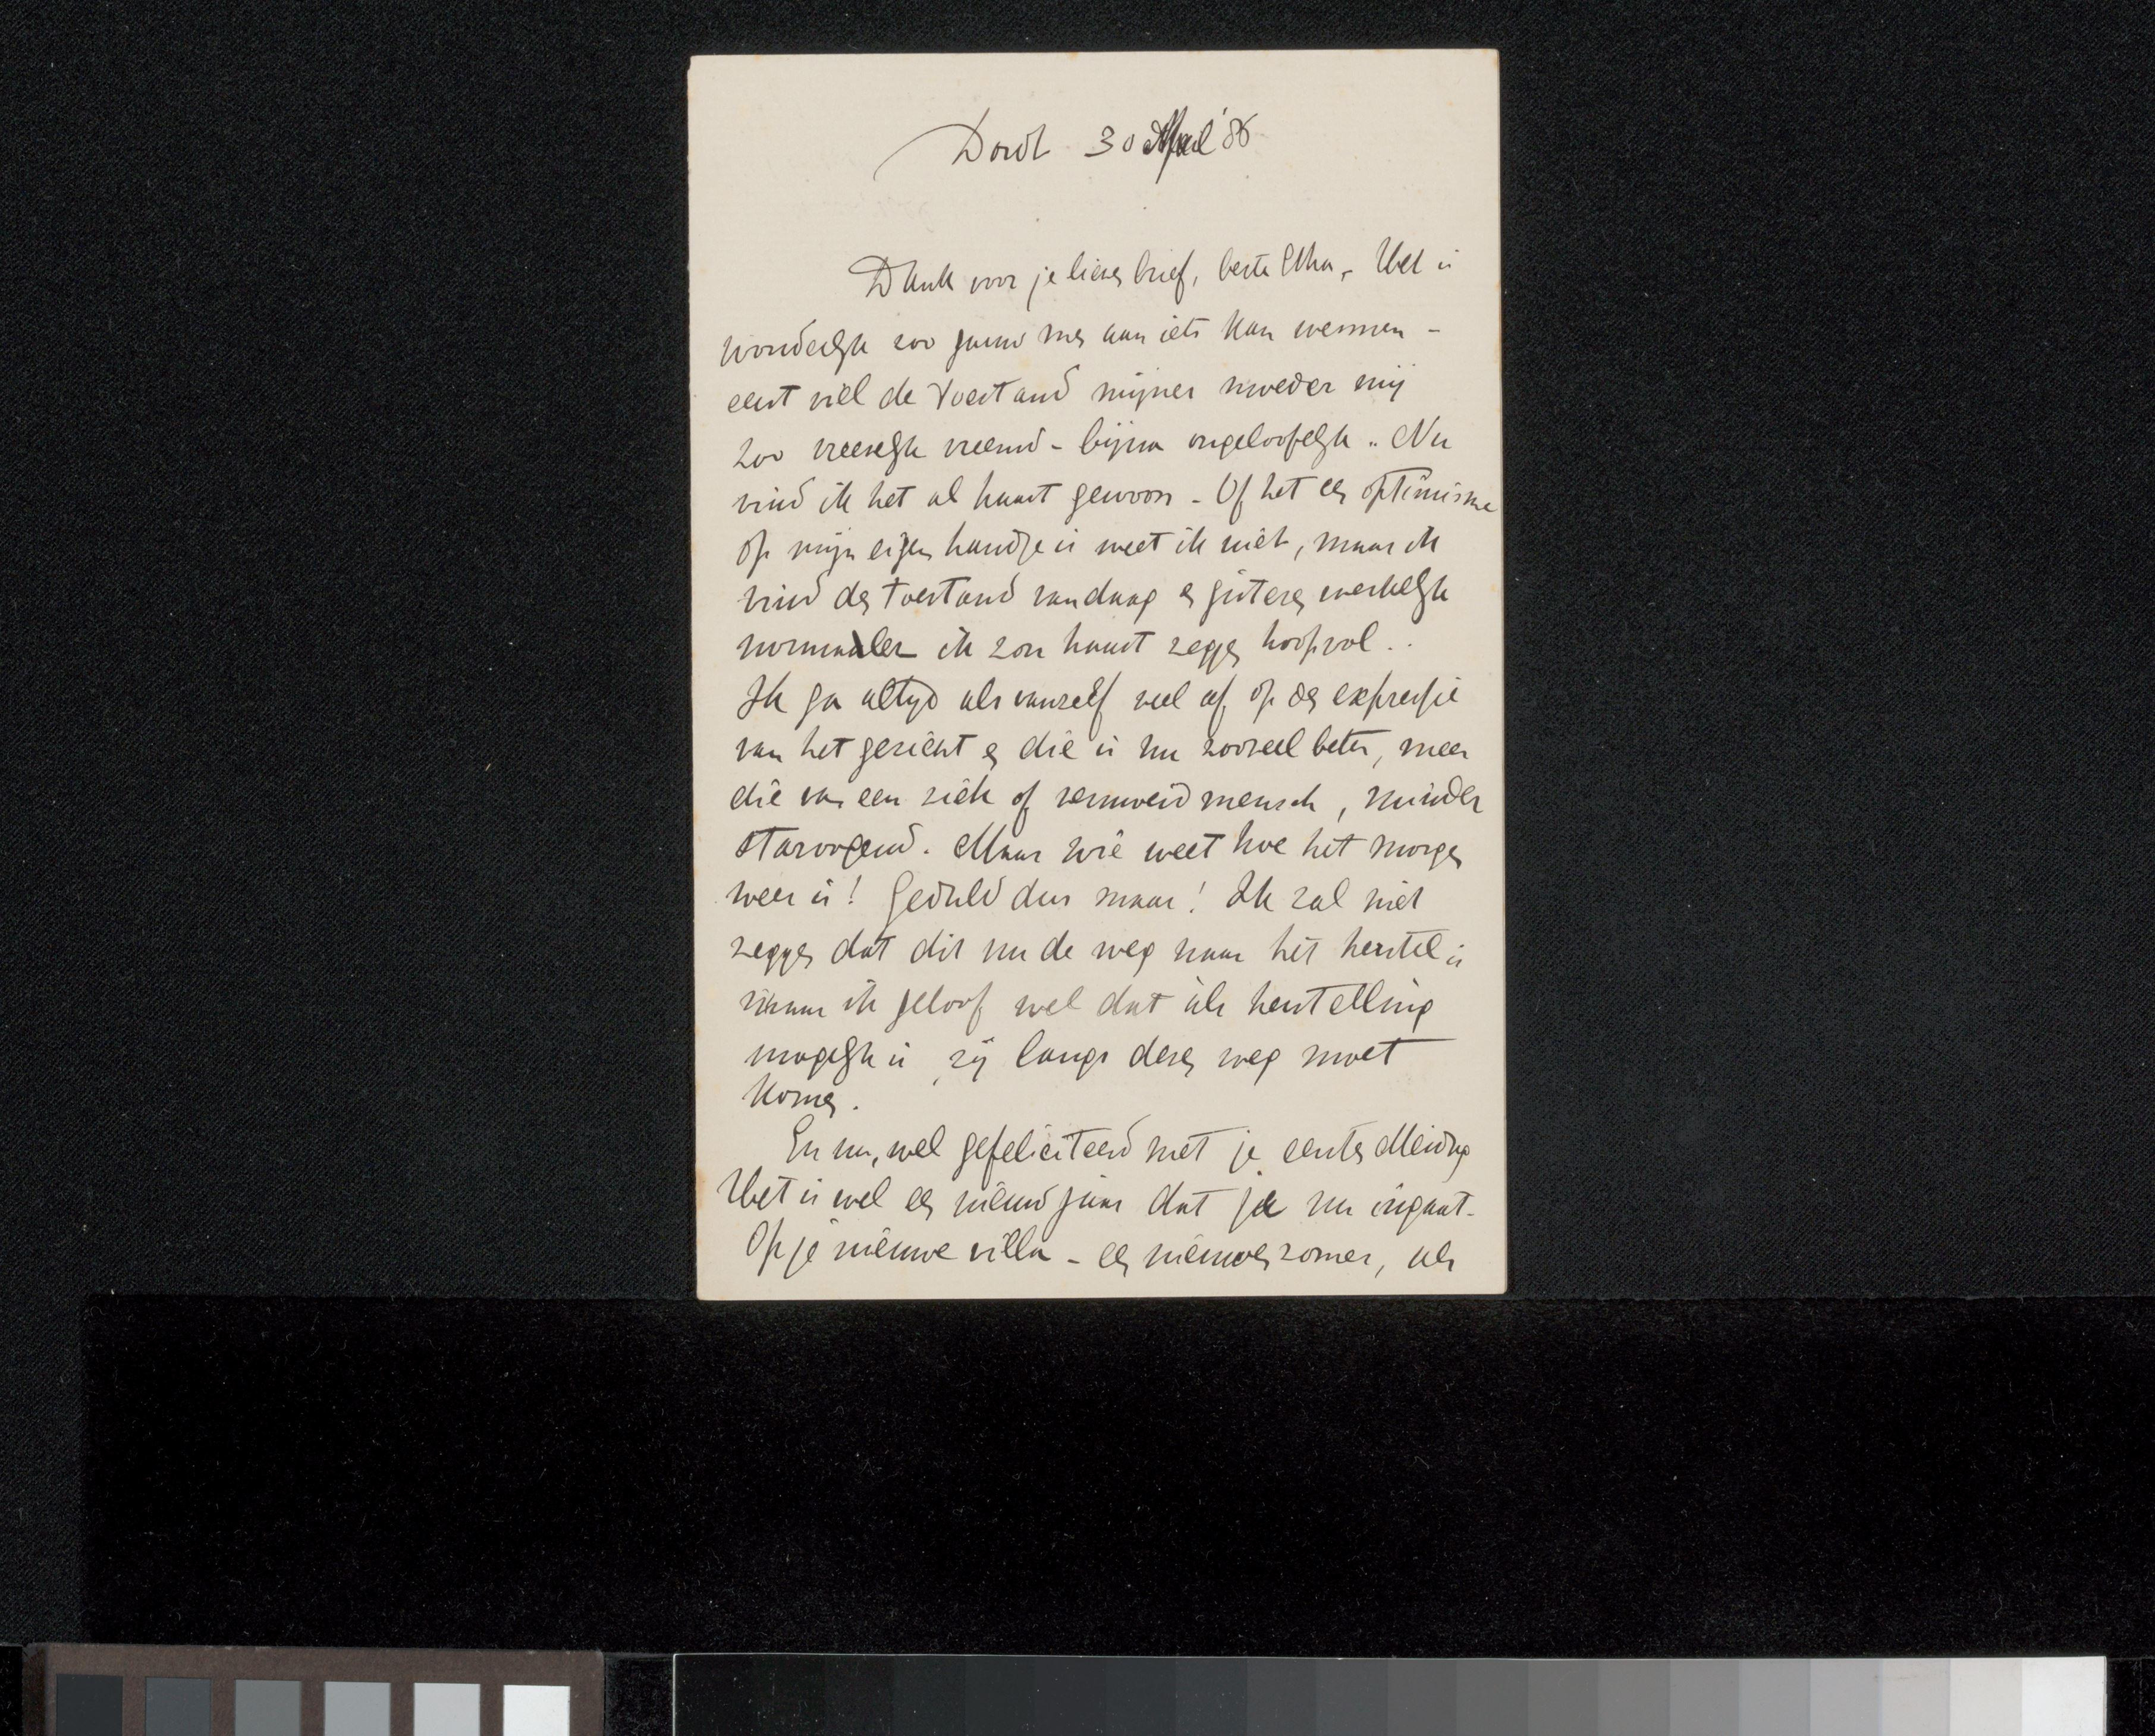 Dordt 30 April '86
Dank voor je lieven brief, beste Etha, Het is
wonderlyk zoo gauw men aan iets kan wennen -
eerst viel de toestand mijner moeder mij
zoo vreeselyk vreemd - bijna ongeloofelyk .. Nu
vind ik het al haast gewoon - Of het een optimisme
op mijn eigen handje is weet ik niet, maar ik
vind den toestand vandaag en gisteren werkelyk
normaler ik zou haast zeggen hoopvol ..
Ik ga altyd als vanzelf veel af op den expressie
van het gezicht en die is nu zooveel beter, meer
die van een ziek of vermoeid mensch, minder
staroogend. Maar wie weet hoe het morgen
weer is! Geduld dus maar! Ik zal niet
zeggen dat dit nu de weg naar het herstel is
maar ik geloof wel dat als herstelling
mogelyk is, zij langs dezen weg moet
komen.
En nu, wel gefeliciteerd met je eersten Meidag
Het is wel een nieuwjaar dat je nu ingaat -
Op je nieuwe villa - een nieuwen zomer, als